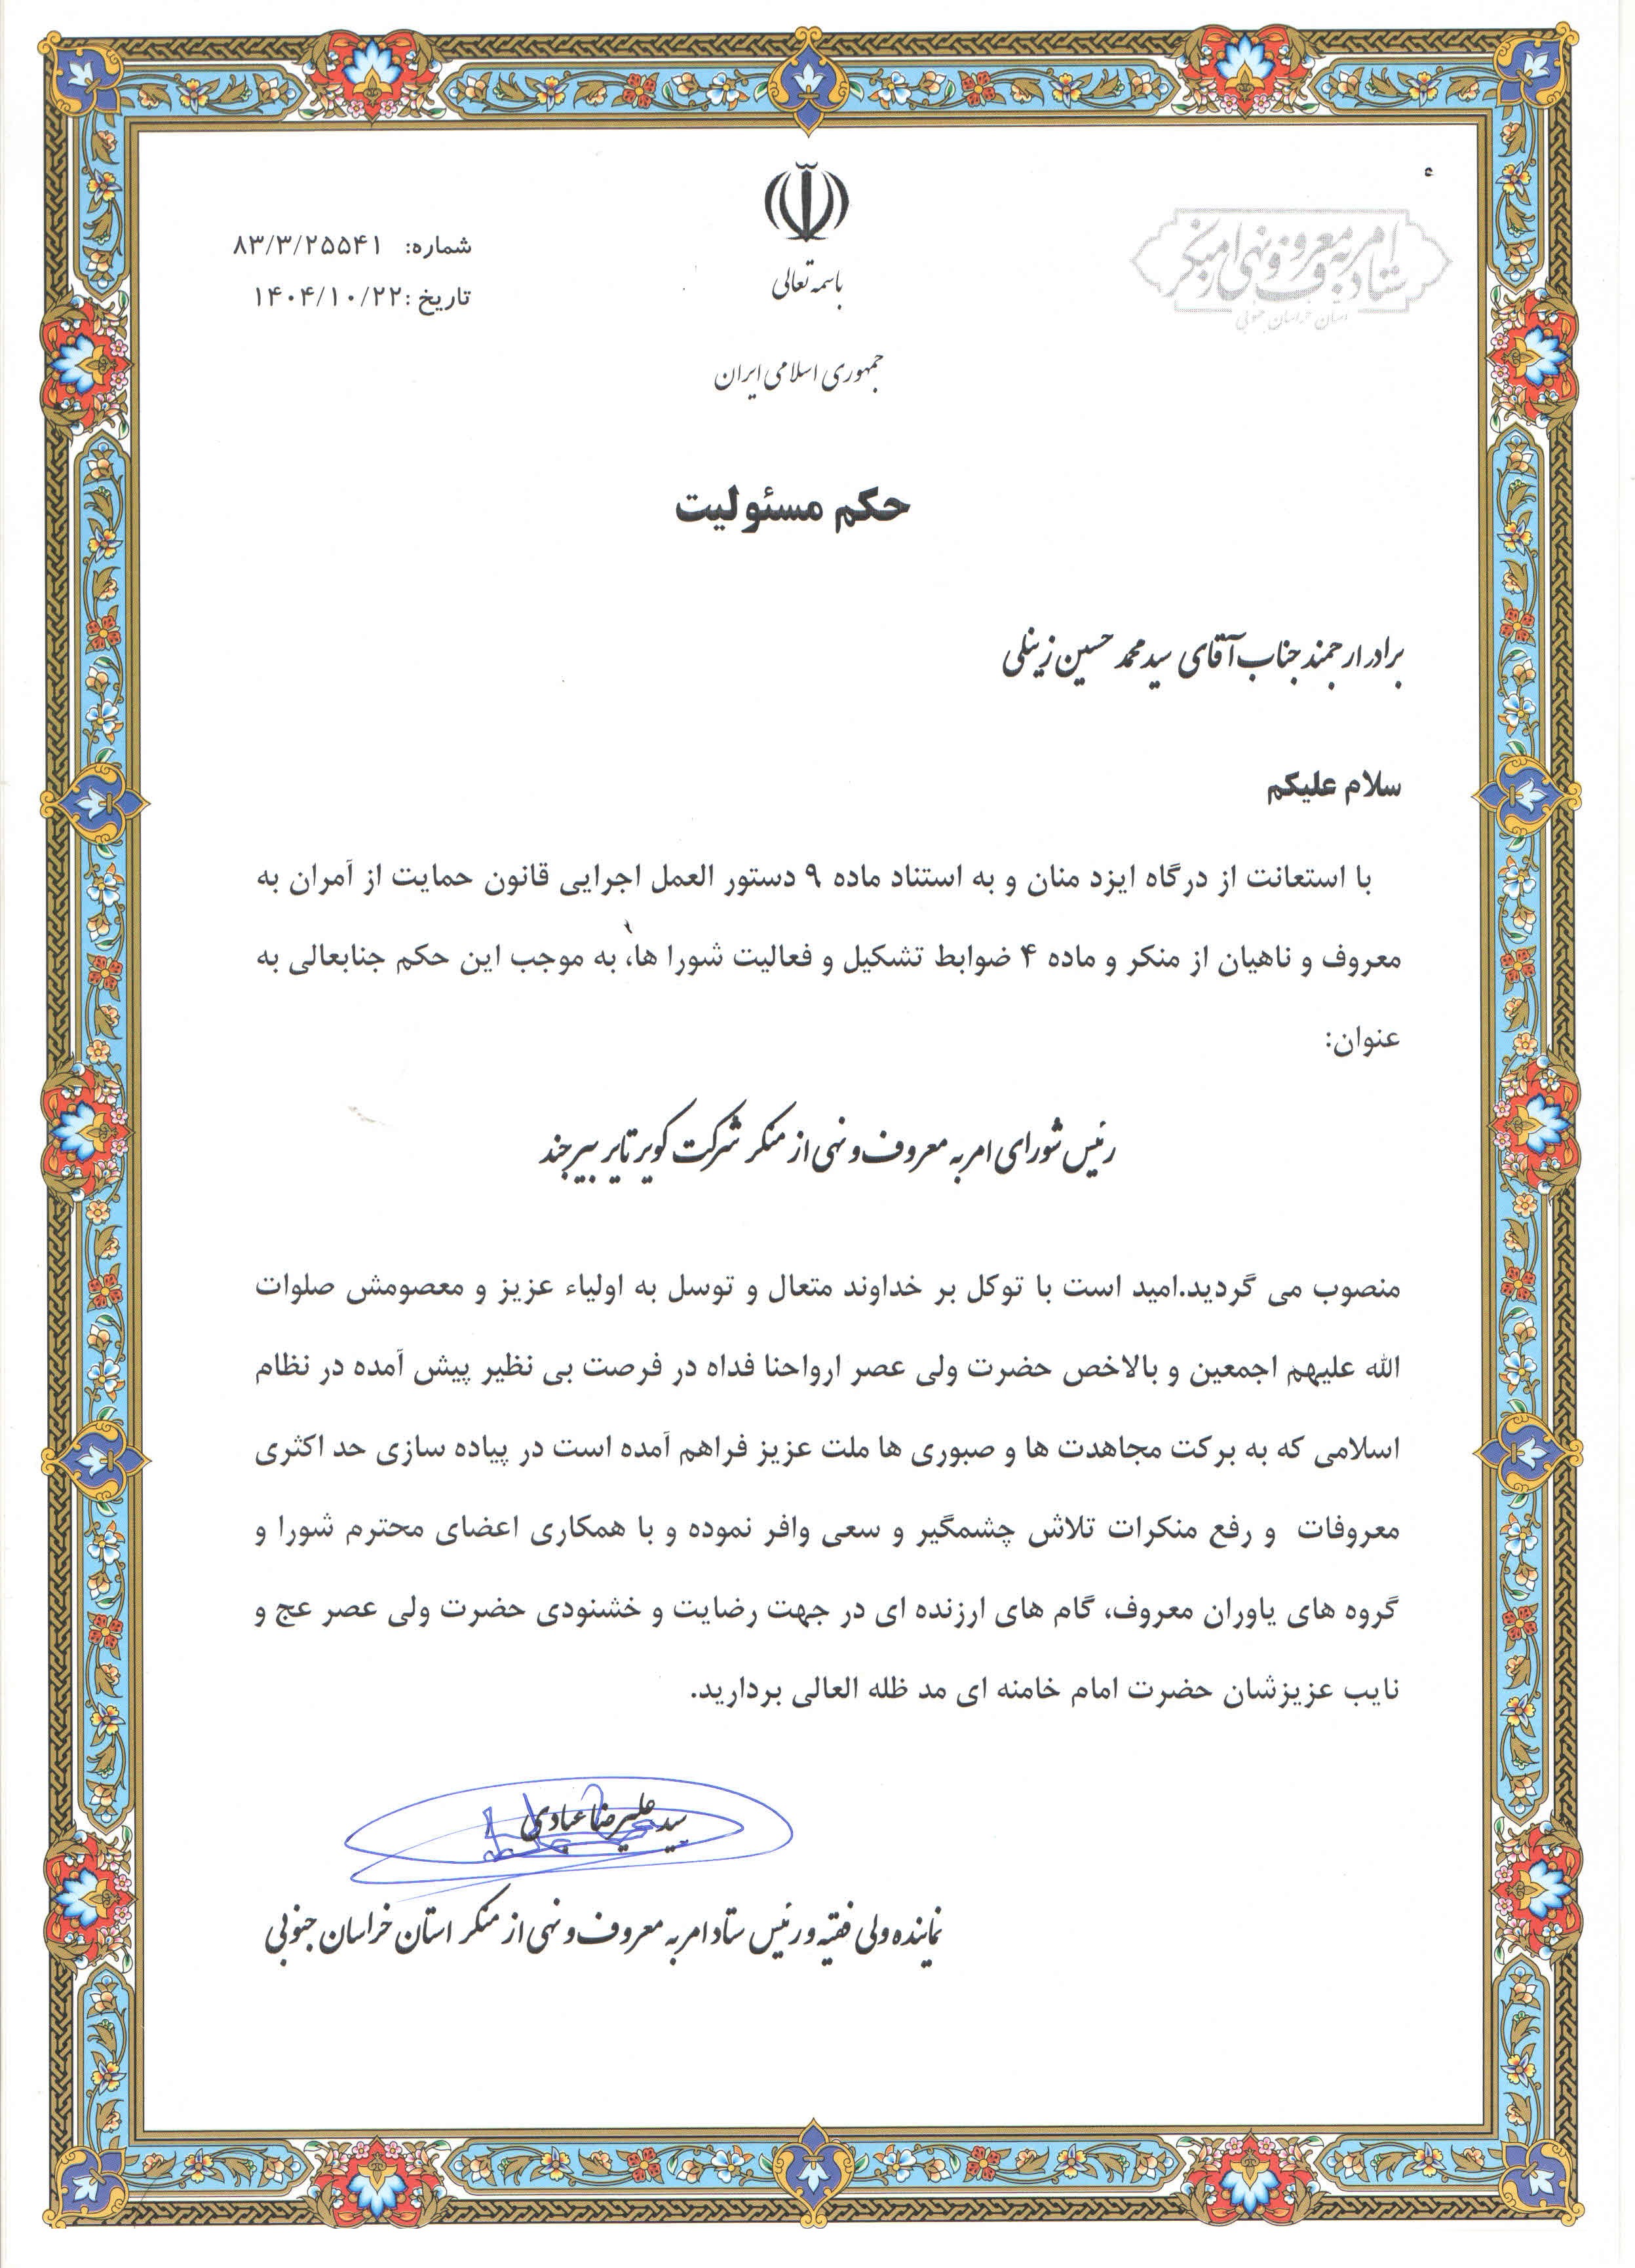 باسمه تعالی
ستاد امر به معروف و نهی از منکر
استان خراسان جنوبی
شماره: ۸۳/۳/۲۵۵۴۱
تاریخ :۱۴۰۴/۱۰/۲۲
جمهوری اسلامی ایران
حکم مسئولیت
برادر ارجمند جناب آقای سید محمد حسین زینلی
سلام علیکم
با استعانت از درگاه ایزد منان و به استناد ماده ۹ دستور العمل اجرایی قانون حمایت از آمران به
معروف و ناهیان از منکر و ماده ۴ ضوابط تشکیل و فعالیت شورا ها، به موجب این حکم جنابعالی به
عنوان:
رئیس شورای امر به معروف و نهی از منکر شرکت کویر تایر بیرجند
منصوب می گردید.امید است با توکل بر خداوند متعال و توسل به اولیاء عزیز و معصومش صلوات
الله علیهم اجمعین و بالاخص حضرت ولی عصر ارواحنا فداه در فرصت بی نظیر پیش آمده در نظام
اسلامی که به برکت مجاهدت ها و صبوری ها ملت عزیز فراهم آمده است در پیاده سازی حد اکثری
معروفات و رفع منکرات تلاش چشمگیر و سعی وافر نموده و با همکاری اعضای محترم شورا و
گروه های یاوران معروف، گام های ارزنده ای در جهت رضایت و خشنودی حضرت ولی عصر عج و
نایب عزیزشان حضرت امام خامنه ای مد ظله العالی بردارید.
سید علیرضا عبادی
نماینده ولی فقیه و رئیس ستاد امر به معروف و نهی از منکر استان خراسان جنوبی